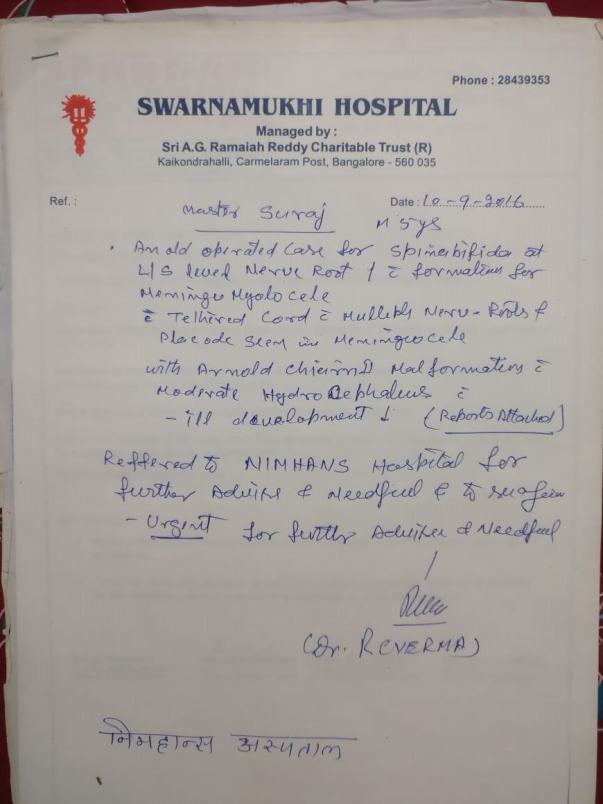 Phone : 28439353
SWARNAMUKHI HOSPITAL
Managed by :
Sri A.G. Ramaiah Reddy Charitable Trust (R)
Kaikondrahalli, Carmelaram Post, Bangalore - 560 035
Ref. :
Date : 10-9-2016
Master Suraj M 5ys
An old operated Case for Spinabifida at
L/S level Nerve Root formation for
Meningo Myolocele
c̄ Tethered Cord c̄ Multiple Nerve-Roots &
Placode Seen in Meningocele
with Arnold chiari II Malformation c̄
Moderate HydroCephalus c̄
- ill development ↓ (Reports Attached)
Reffered to NIMHANS Hospital for
further Advise & Needful & to
- Urgent for further Advise & Needful
(Dr. R C VERMA)
निमहान्स अस्पताल